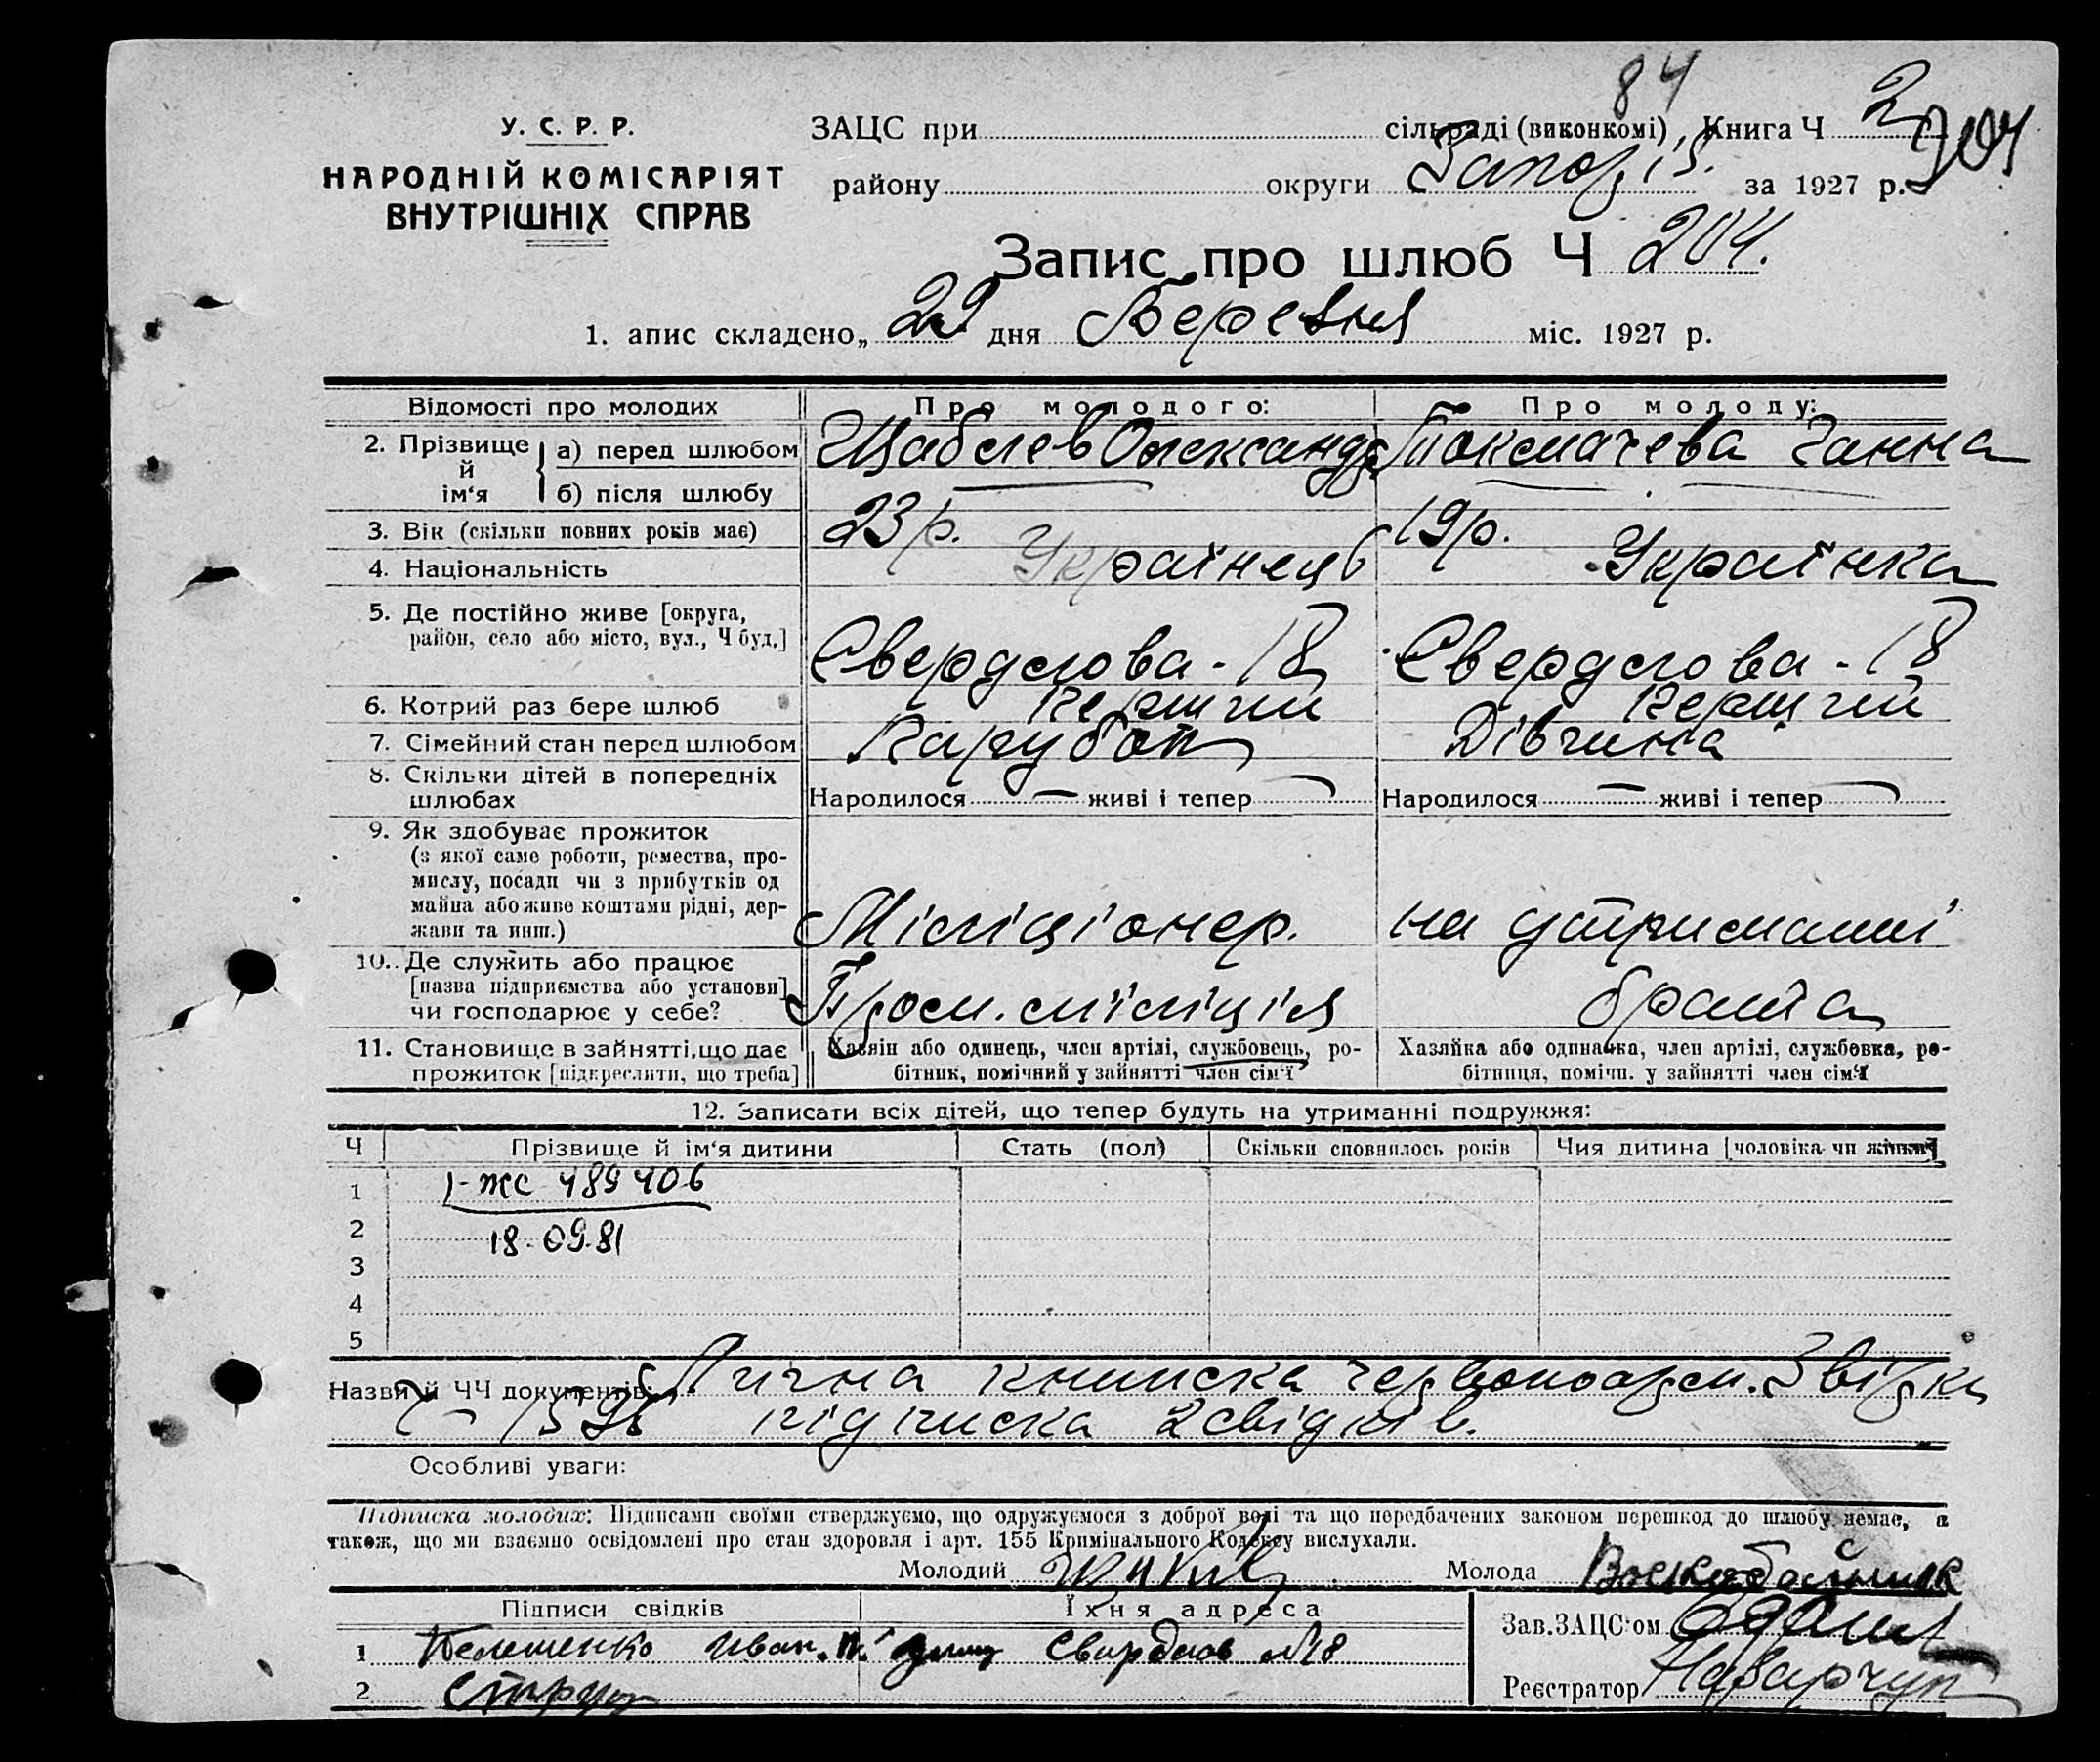 84
У. С. Р. Р.
НАРОДНІЙ КОМІСАРІЯТ
ВНУТРІШНІХ СПРАВ
ЗАЦС при сільраді (виконкомі), Книга Ч 2
204
району округи Запоріз. за 1927 р.
Запис про шлюб Ч 204.
1. апис складено „ 29 дня Березня міс. 1927 р.
Відомості про молодих Про молодого: Про молоду:
2. Прізвище й ім‘я а) перед шлюбом Щаблев Олександр Токмачева Ганна
б) після шлюбу
3. Вік (скільки повних років має) 23 р. 19 р.
4. Національність Українець Українка
5. Де постійно живе [округа,
район, село або місто, вул., Ч буд.] Свердлова - 18 Свердлова - 18
6. Котрий раз бере шлюб Перший Перший
7. Сімейний стан перед шлюбом Парубок Дівчина
8. Скільки дітей в попередніх
шлюбах Народилося — живі і тепер — Народилося — живі і тепер —
9. Як здобуває прожиток
(з якої саме роботи, ремества, про-
мислу, посади чи з прибутків од
майна або живе коштами рідні, дер-
жави та инш.) Міліціонер. на утриманні
10. Де служить або працює
[назва підприємства або установи]
чи господарює у себе? Пром. міліція брата
11. Становище в зайнятті, що дає
прожиток [підкреслити, що треба]
Хазяін або одинець, член артілі, службовець, ро-
бітник, помічний у зайнятті член сім‘ї
Хазяйка або одиначка, член артілі, службовка, ро-
бітниця, помічн. у зайнятті член сім‘ї
12. Записати всіх дітей, що тепер будуть на утриманні подружжя:
Ч Прізвище й ім‘я дитини Стать (пол) Скільки сповнилось років Чия дитина [чоловіка чи жінки]
1 I-жс 489406
2 18.09.81
3
4
5
Назви й ЧЧ документів: Лична книжка червоноарм. Звірки
підписка 2 свідків.
Особливі уваги:
Підписка молодих: Підписами своїми стверджуємо, що одружуємося з доброї волі та що передбачених законом перешкод до шлюбу немає, а
також, що ми взаємно освідомлені про стан здоровля і арт. 155 Кримінального Кодексу вислухали.
Молодий Молода
Підписи свідків Їхня адреса
Зав. ЗАЦС‘ом
1 Иван Свирдлов №18
2
Реєстратор